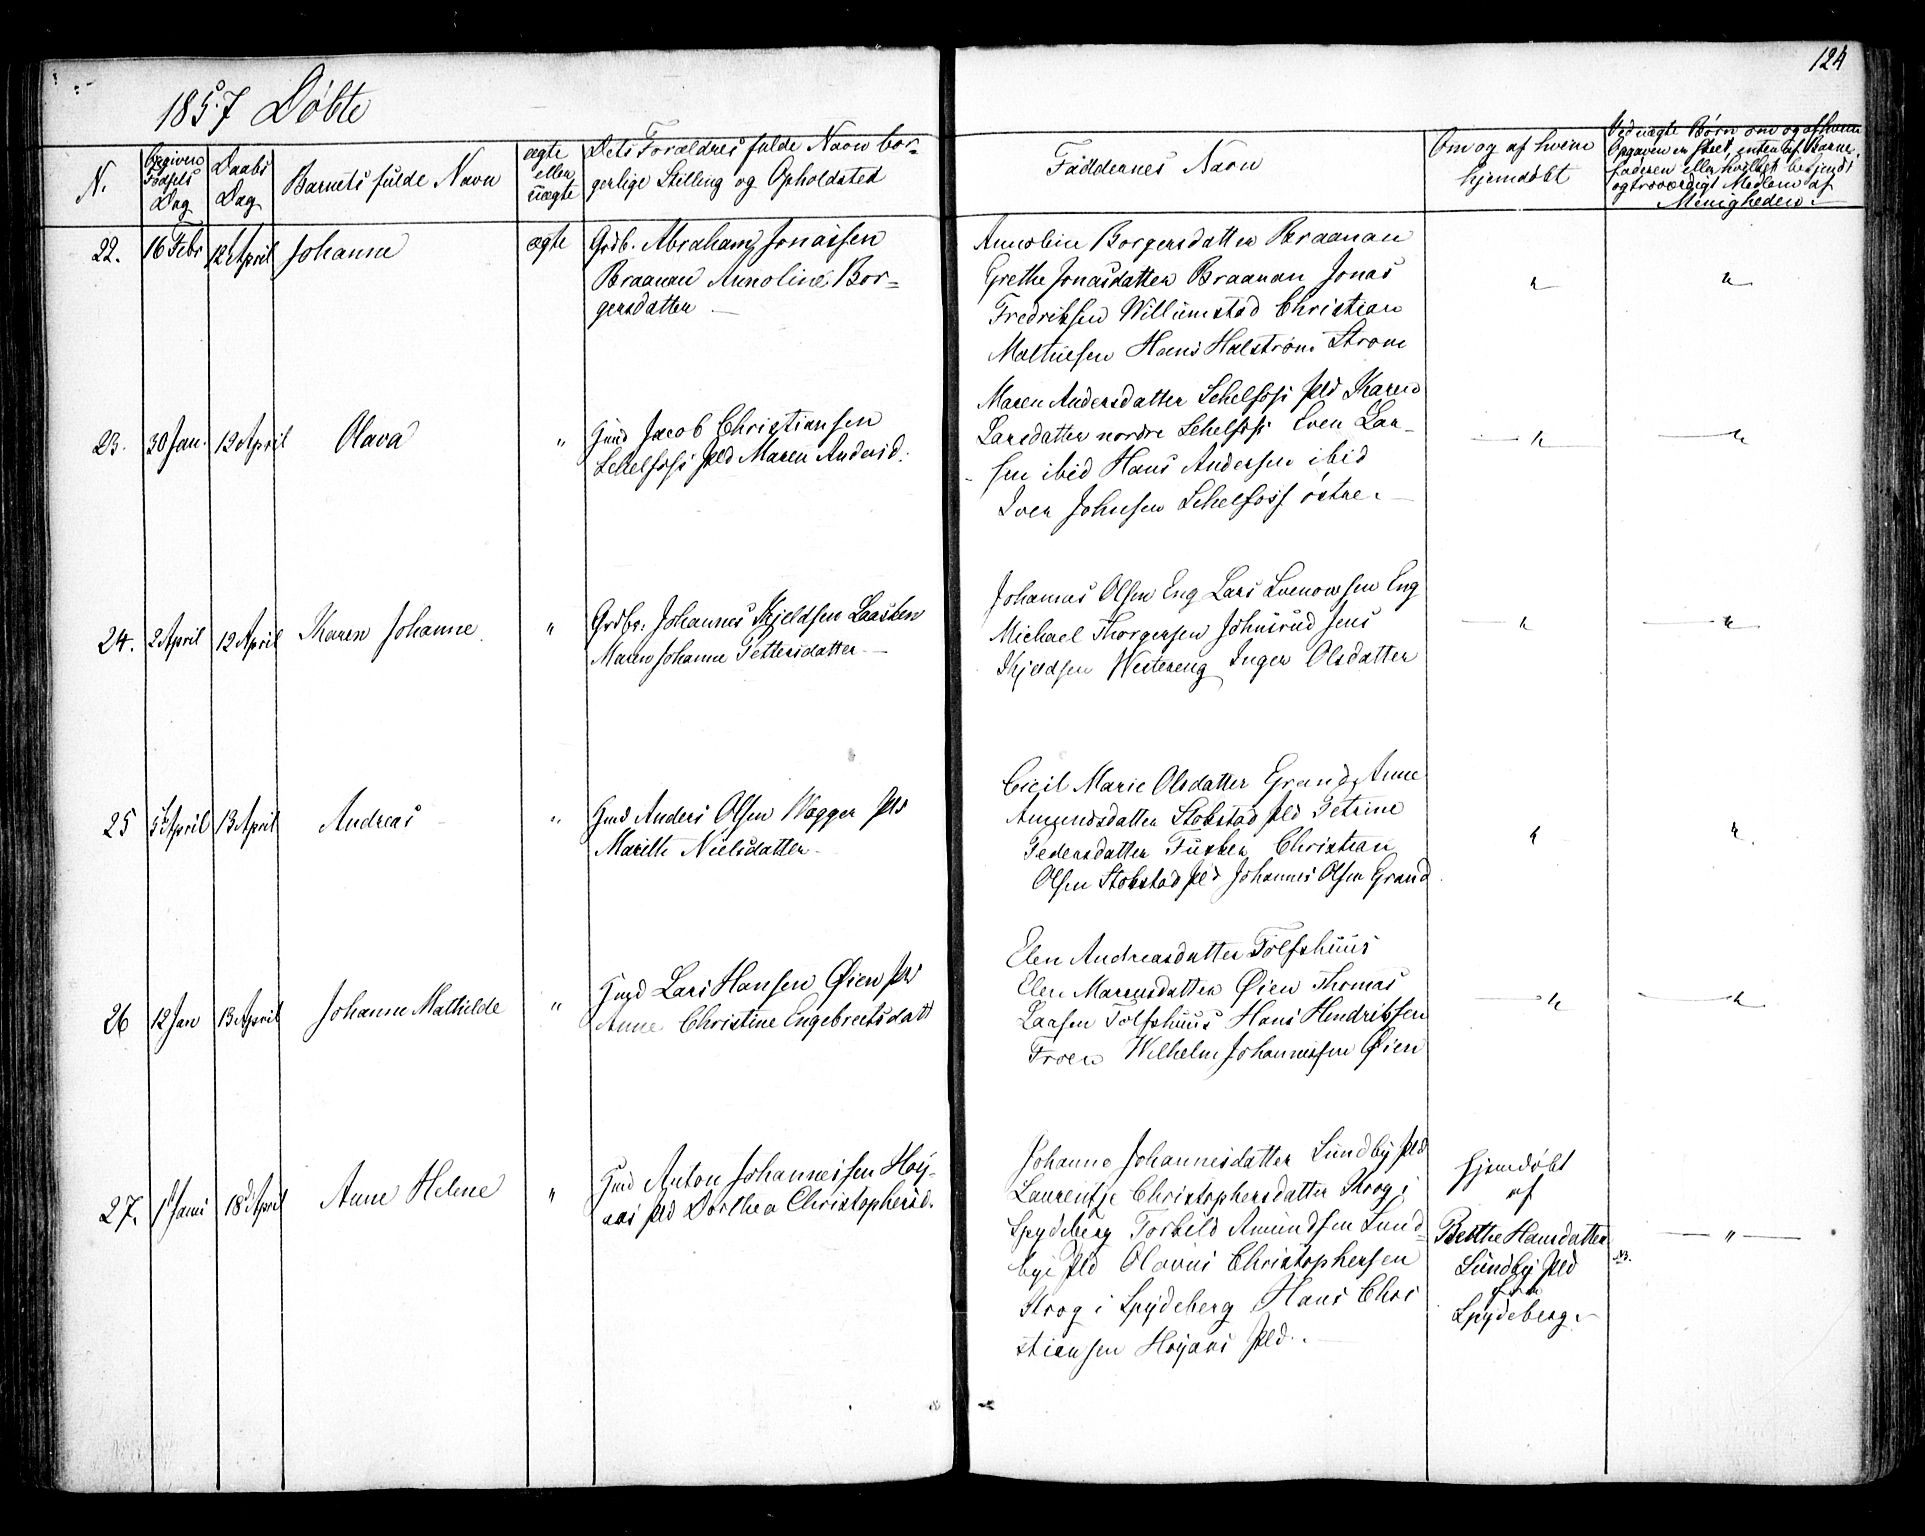 124
1857 Døbte
N.
begiven Fødsels Dag
Daabs Dag
Barnets fulde Navn
ægte eller uægte
Dets Forældres fulde Navn bor-
gerlige Stilling og Opholdsted
Faddernes Navn
Om og af hvem
hjemdøbt
Ved uægte Børn om og af hvem
Opgaven er skeet, enten af Barne-
faderen eller hvilket bekjendt
og troværdigt Medlem af
Menigheden.
22. 16 Febr 12 April Johanne ægte
Grdb. Abraham Jonassen
Braanan Annoline Bor-
gersdatter
Annoline Borgersdatter Braanan
Grethe Jonasdatter Braanan Jonas
Fredriksen Willumstad Christian
Mathiesen Hans Halstrøm Strøm
23. 30 Jan. 12 April Olava "
Gmd Jacob Christiansen
Schelfoss Pld Maren Andersd.
Maren Andersdatter Schelfoss Pld Karen
Larsdatter nordre Schelfoss Even Lar-
sen ibid Hans Andersen ibid
Iver Johnsen Schelfoss østre.
24. 2 April 12 April Karen Johanne "
Grdbr. Johannes Kjeldsen Laasken
Maren Johanne Pettersdatter
Johannes Olsen Eng Lars Svenowsen Eng
Michael Thorgersen Johnsrud Jens
Kjeldsen Westereng Inger Olsdatter
25 5t April 13 April Andreas "
Gmd Anders Olsen Wogger Pld
Marithe Nielsdatter
Cicil Marie Olsdatter Grand Anne
Amundsdatter Stokstad Pld Petrine
Pedersdatter Fusker Christian
Olsen Stokstad Pld Johannes Olsen Grand
26 12 Jan 13 April Johanne Mathilde "
Gmd Lars Hansen Øien Pld
Anne Christine Engebretsdatt
Elen Andreasdatter Tolfshuus
Elen Marensdatter Øien Thomas
Larsen Tolfshuus Hans Hendriksen
Froen Wilhelm Johannesen Øien
27. 1t Jani 18d April Anne Helene "
Gmd Anton Johannessen Høy-
aas Pld Dorthea Christophersd.
Johanne Johannesdatter Lundby Pld
Laurentje Christophersdatter Krog i
Spydeberg Torkild Amundsen Lund-
bye Pld Olavus Christophersen
Krog i Spydeberg Hans Chri
stiansen Høyaas Pld.
hjemdøbt
af
Berthe Hansdatter
Lundby Pld
fra
Spydeberg.
NB.